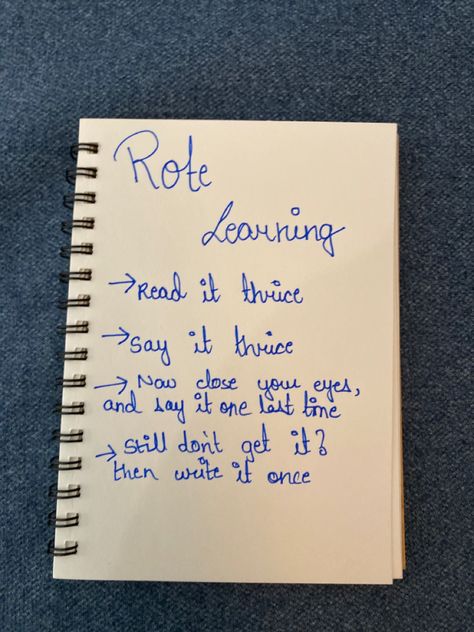 Rote
Learning
→Read it thrice
→Say it thrice
→ Now close your eyes,
and say it one last time
→ Still don't get it?
then write it once